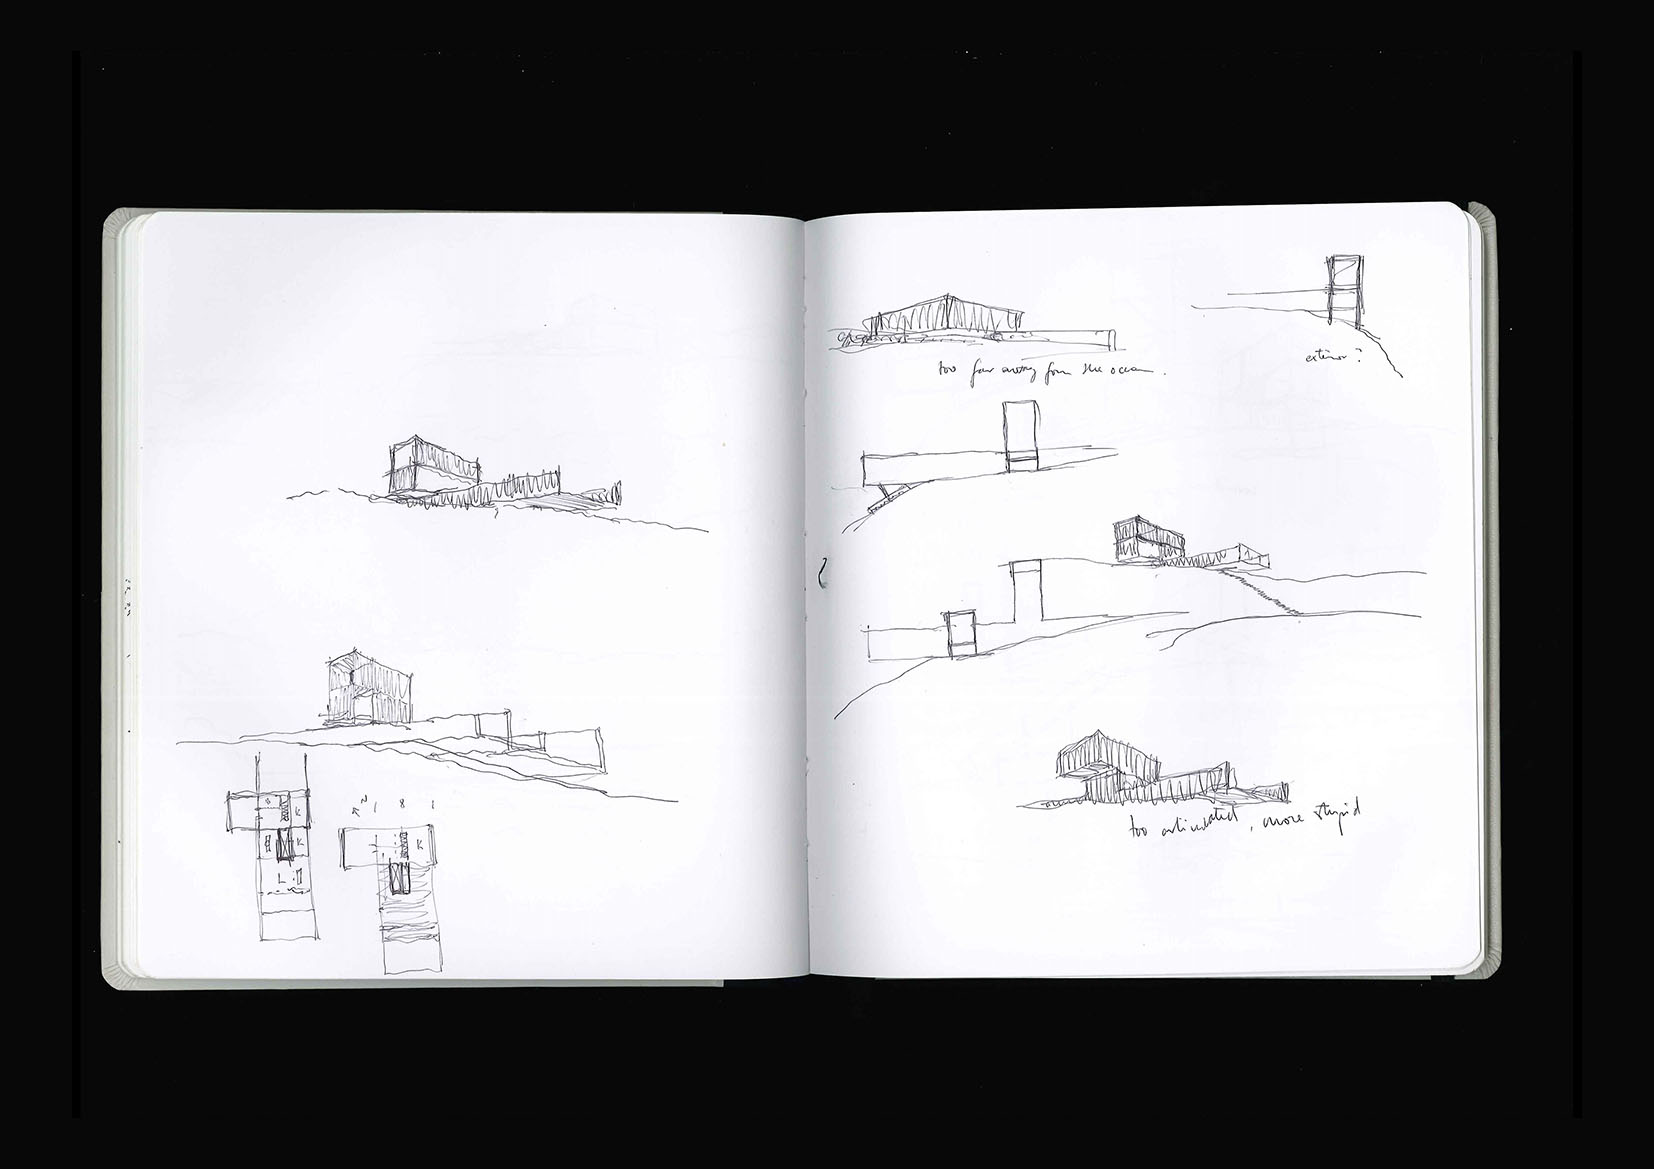 too far away from the ocean.
exterior?
too articulated, more stupid
K
K
L
K